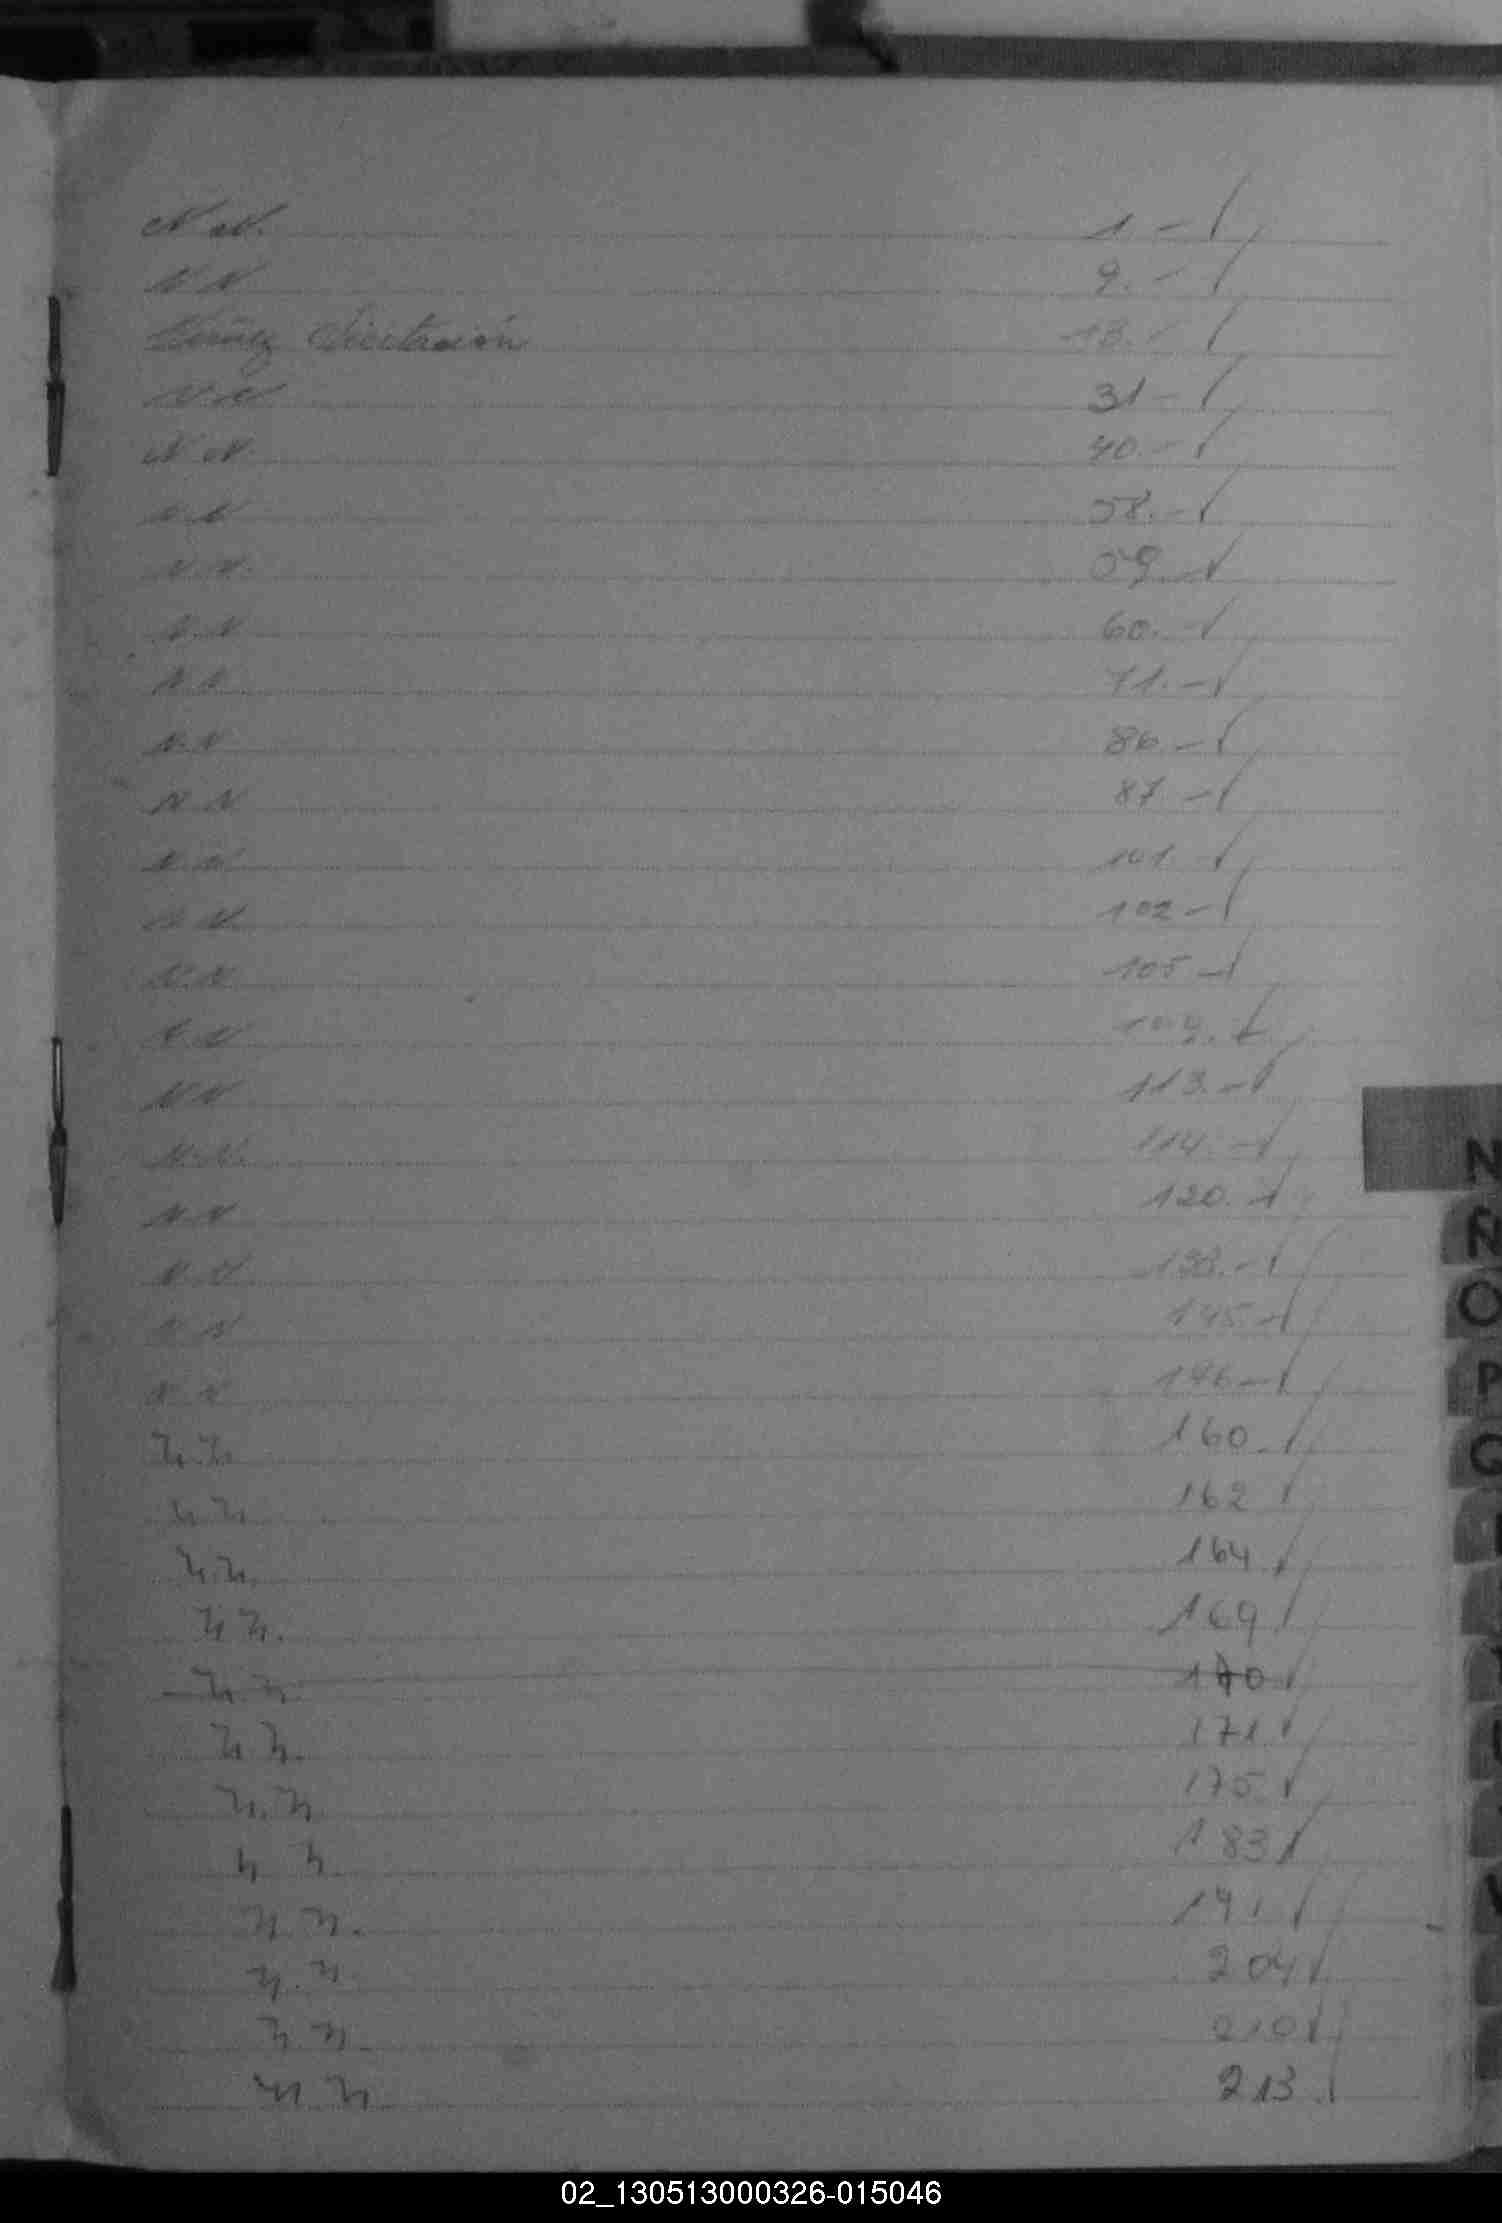 N.N. 1.-
N N 9.-
Núñez Visitación 13.-
N.N 31-
N.N. 40.-
N.N 58.-
N.N. 59.-
N.N 60.-
N N 71.-
N.N 86.-
N.N 87-
N.N 101-
N N. 102-
N.N 105-
N.N 109.-
N N 113.-
N.N. 114.-
N.N 120.-
N.N 138.-
N N 145-
N N 146-
N.N. 160
N N 162
N.N. 164
N N. 169
N.N. 170
N N. 171
N.N 175
N N 183
N N. 191
N.N. 204
N.N 210
N N 213
N
Ñ
O
P
Q
02_130513000326-015046